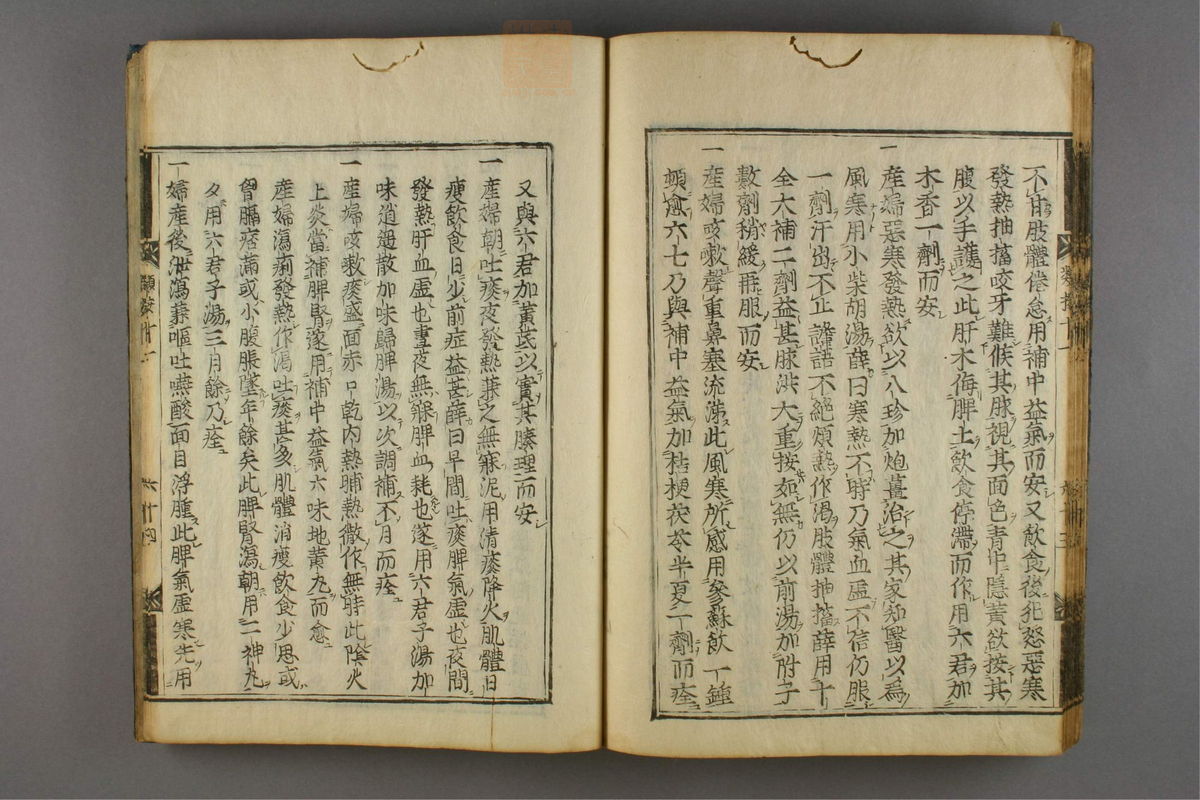 不甘肢體倦怠用補中益氣而安又飲食後犯怒惡寒
發熱抽搐咬牙難候其脉視其面色青中隱黃欲按其
腹以手護之此肝木侮脾土飲食停滯而作用六君加
木香一劑而安
一產婦惡寒發熱欲以八珍加炮薑治之其家知醫以爲
風寒用小柴胡湯薛曰寒熱不時乃氣血虛不信仍服
一劑汗出不止譫語不絕煩熱作渴肢體抽搐薛用十
全大補二劑益甚脉洪大重按如無仍以前湯加附子
數劑稍緩再服而安
一產婦咳嗽聲重鼻塞流涕此風寒所感用參蘇飲一鍾
頓愈六七乃與補中益氣加桔梗茯苓半夏一劑而痊
又與六君加黃芪以實其腠理而安
一產婦朝吐痰夜發熱兼之無寐泥用清痰降火肌體日
瘦飲食日少前症益甚薛曰早間吐痰脾氣虛也夜間
發熱肝血虛也晝夜無寐脾血耗也遂用六君子湯加
味逍遙散加味歸脾湯以次調補不月而痊
一產婦咳嗽痰盛面赤口乾內熱晡熱微作無時此陰火
上炎當補脾腎遂用補中益氣六味地黃丸而愈
產婦瀉痢發熱作渴吐痰甚多肌體消瘦飲食少思或
胷膈痞滿或小腹脹墜年餘矣此脾腎瀉朝用二神丸
夕用六君子湯三月餘乃痊
一婦產後泄瀉兼嘔吐嚥酸面目浮腫此脾氣虛寒先用